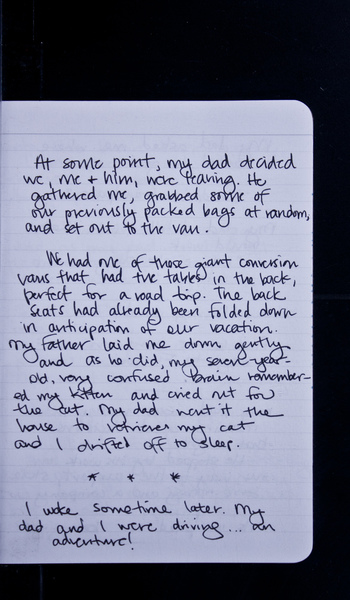 At some point, my dad decided
we, me + him, were leaving. He
gathered me, grabbed some of
our previously packed bags at random,
and set out to the van.
We had one of those giant conversion
vans that had the tables in the back,
perfect for a road trip. The back
seats had already been folded down
in anticipation of our vacation.
My father laid me down gently
and as he did, my seven-year-
old, very confused brain remember-
ed my kitten and cried out for
the cat. My dad went it the
house to retrieve my cat
and I drifted off to sleep.
* * *
I woke sometime later. My
dad and I were driving... an
adventure!